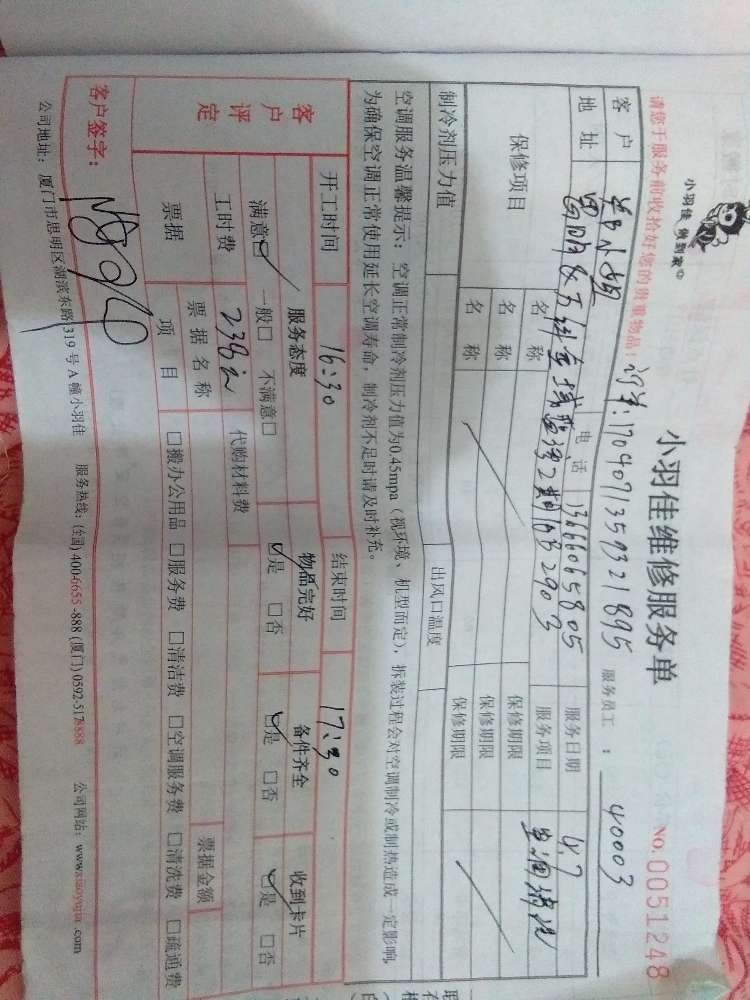 小羽佳 务到家
小羽佳维修服务单
NO. 0051248
请您于服务前收拾好您的贵重物品! 订单:1704071359321895 服务员工: 40003
客户 小姐 电话 13666065805 服务日期 4.7
地址 2期 2903 服务项目 空调清洗
保修项目 名称 保修期限
名称 保修期限
名称 保修期限
制冷剂压力值 出风口温度
空调服务温馨提示: 空调正常制冷剂压力值为0.45mpa(视环境、机型而定),拆装过程会对空调制冷或制热造成一定影响,
为确保空调正常使用延长空调寿命,制冷剂不足时请及时补充。
开工时间 16:30 结束时间 17:30
客户评定 服务态度 物品完好 备件齐全 收到卡片
满意☑ 一般□ 不满意□ ☑是 □否 ☑是 □否 ☑是 □否
工时费 238元 代购材料费
票据 票据名称 票据金额
项目 □搬办公用品 □服务费 □清洁费 □空调服务费 □清洗费 □疏通费
客户签字:
公司地址: 厦门市思明区湖滨东路319号A幢小羽佳 服务热线: (全国) 400-6655-888 (厦门) 0592-5178888 公司网站: www.xiaoyujia.com